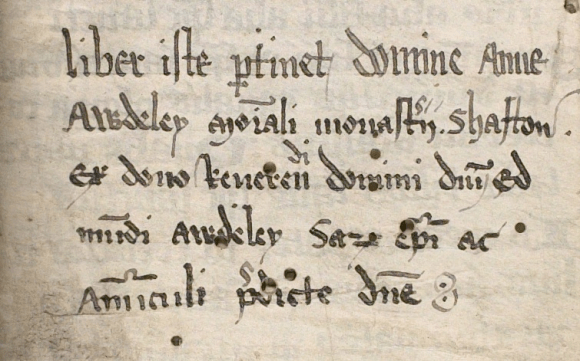 liber iste ꝑtinet domine Anne
Awdeley mōiali monastʼij. Shafton.
Ex dono Reuerendi domini dnī Ed
mūdi Awdeley Saꝝ epī ac
Auūculi p̃dicte dn̄e